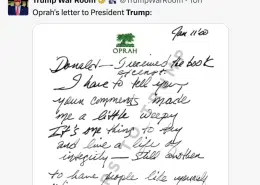 Trump War Room @TrumpWarRoom · 10h
Oprah's letter to President Trump:
OPRAH
Jan 11 '00
Donald - I received the book
excerpt.
I have to tell you,
your comments made
me a little weepy
It's one thing to try
and live a life of
integrity - still another
to have people like yourself